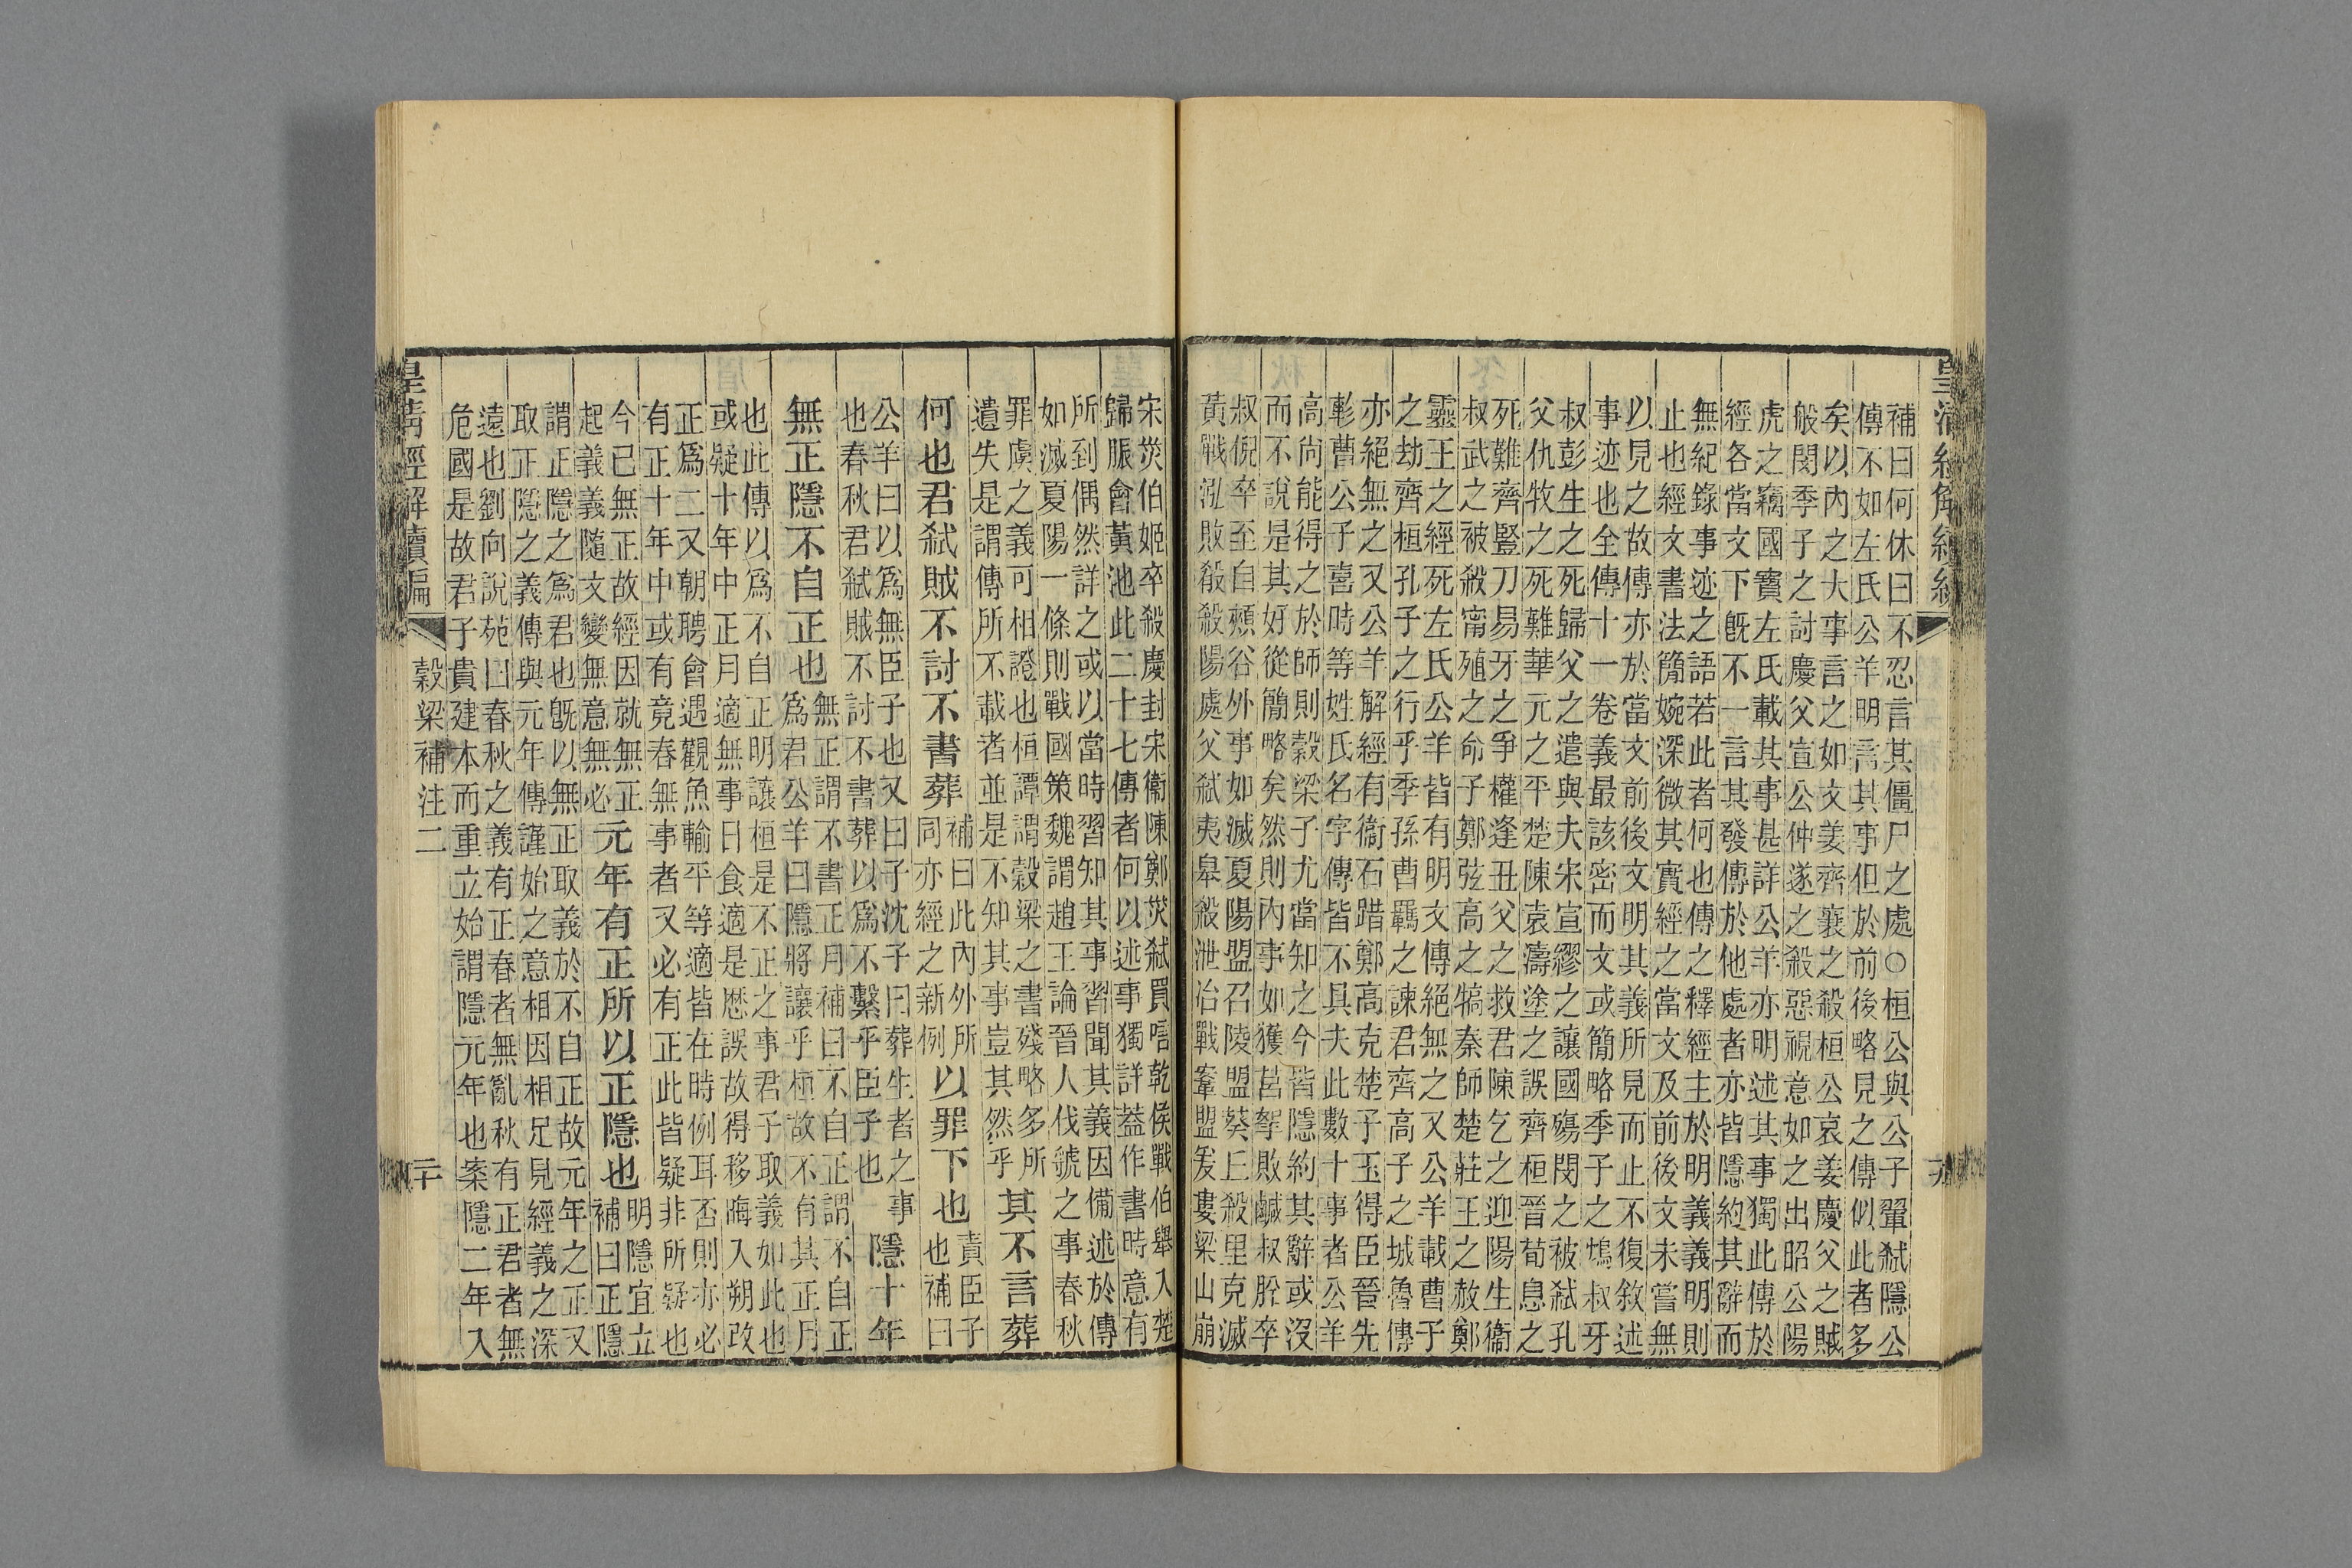 皇清經解續編
補曰何休曰不忍言其僵尸之處○桓公與公子翬弒隱公
傳不如左氏公羊明言其事但於前後略見之傳似此者多
矣以內之大事言之如文姜齊襄之殺桓公哀姜慶父之賊
般閔季子之討慶父宣公仲遂之殺惡視意如之出昭公陽
虎之竊國寶左氏載其事甚詳公羊亦明述其事獨此傳於
經各當文下旣不一言其發傳於他處者亦皆隱約其辭而
無紀錄事迹之語若此者何也傳之釋經主於明義義明則
止也經文書法簡婉深微其實經之當文及前後文未嘗無
以見之故傳亦於當文前後文明其義所見而止不復敘述
事迹也全傳十一卷義最該密而文或簡略季子之鴆叔牙
叔彭生之死歸父之遣與夫宋宣繆之讓國殤閔之被弒孔
父仇牧之死難華元之平楚陳袁濤塗之誤齊桓晉荀息之
死難齊豎刀易牙之爭權逢丑父之救君陳乞之迎陽生衞
叔武之被殺甯殖之命子鄭弦高之犒秦師楚莊王之赦鄭
靈王之經死左氏公羊皆有明文傳絕無之又公羊載曹子
之劫齊桓孔子之行乎季孫曹羈之諫君齊高子之城魯傳
亦絕無之又公羊解經有衞石踖鄭高克楚子玉得臣晉先
軫曹公子喜時等姓氏名字傳皆不具夫此數十事者公羊
高尚能得之於師則穀梁子尤當知之今皆隱約其辭或沒
而不說是其好從簡略矣然則內事如獲莒挐敗鹹叔肸卒
叔倪卒至自頰谷外事如滅夏陽盟召陵盟葵丘殺里克滅
黃戰泓敗殽殺陽處父弒夷皋殺泄冶戰鞌盟爰婁梁山崩
宋災伯姬卒殺慶封宋衞陳鄭災弒買唁乾侯戰伯舉入楚
歸脤會黃池此二十七傳者何以述事獨詳葢作書時意有
所到偶然詳之或以當時習知其事習聞其義因備述於傳
如滅夏陽一條則戰國策魏謂趙王論晉人伐虢之事春秋
罪虞之義可相證也桓譚謂穀梁之書殘略多所
遺失是謂傳所不載者並是不知其事豈其然乎
其不言葬
何也君弒賊不討不書葬
補曰此內外所
同亦經之新例
以罪下也
責臣子
也補曰
公羊曰以爲無臣子也又曰子沈子曰葬生者之事
也春秋君弒賊不討不書葬以爲不繫乎臣子也
隱十年
無正隱不自正也
無正謂不書正月補曰不自正謂不自正
爲君公羊曰隱將讓乎桓故不有其正月
也此傳以爲不自正明讓桓是不正之事君子取義如此也
或疑十年中正月適無事日食適是厯誤故得移晦入朔改
正爲二又朝聘會遇觀魚輸平等適皆在時例耳否則亦必
有正十年中或有竟春無事者又必有正此皆疑非所疑也
今已無正故經因就無正
起義義隨文變無意無必
元年有正所以正隱也
明隱宜立
補曰正隱
謂正隱之爲君也旣以無正取義於不自正故元年之正又
取正隱之義傳與元年傳謹始之意相因相足見經義之深
遠也劉向說苑曰春秋之義有正春者無亂秋有正君者無
危國是故君子貴建本而重立始謂隱元年也案隱二年入
皇清經解續編
穀梁補注二
二十